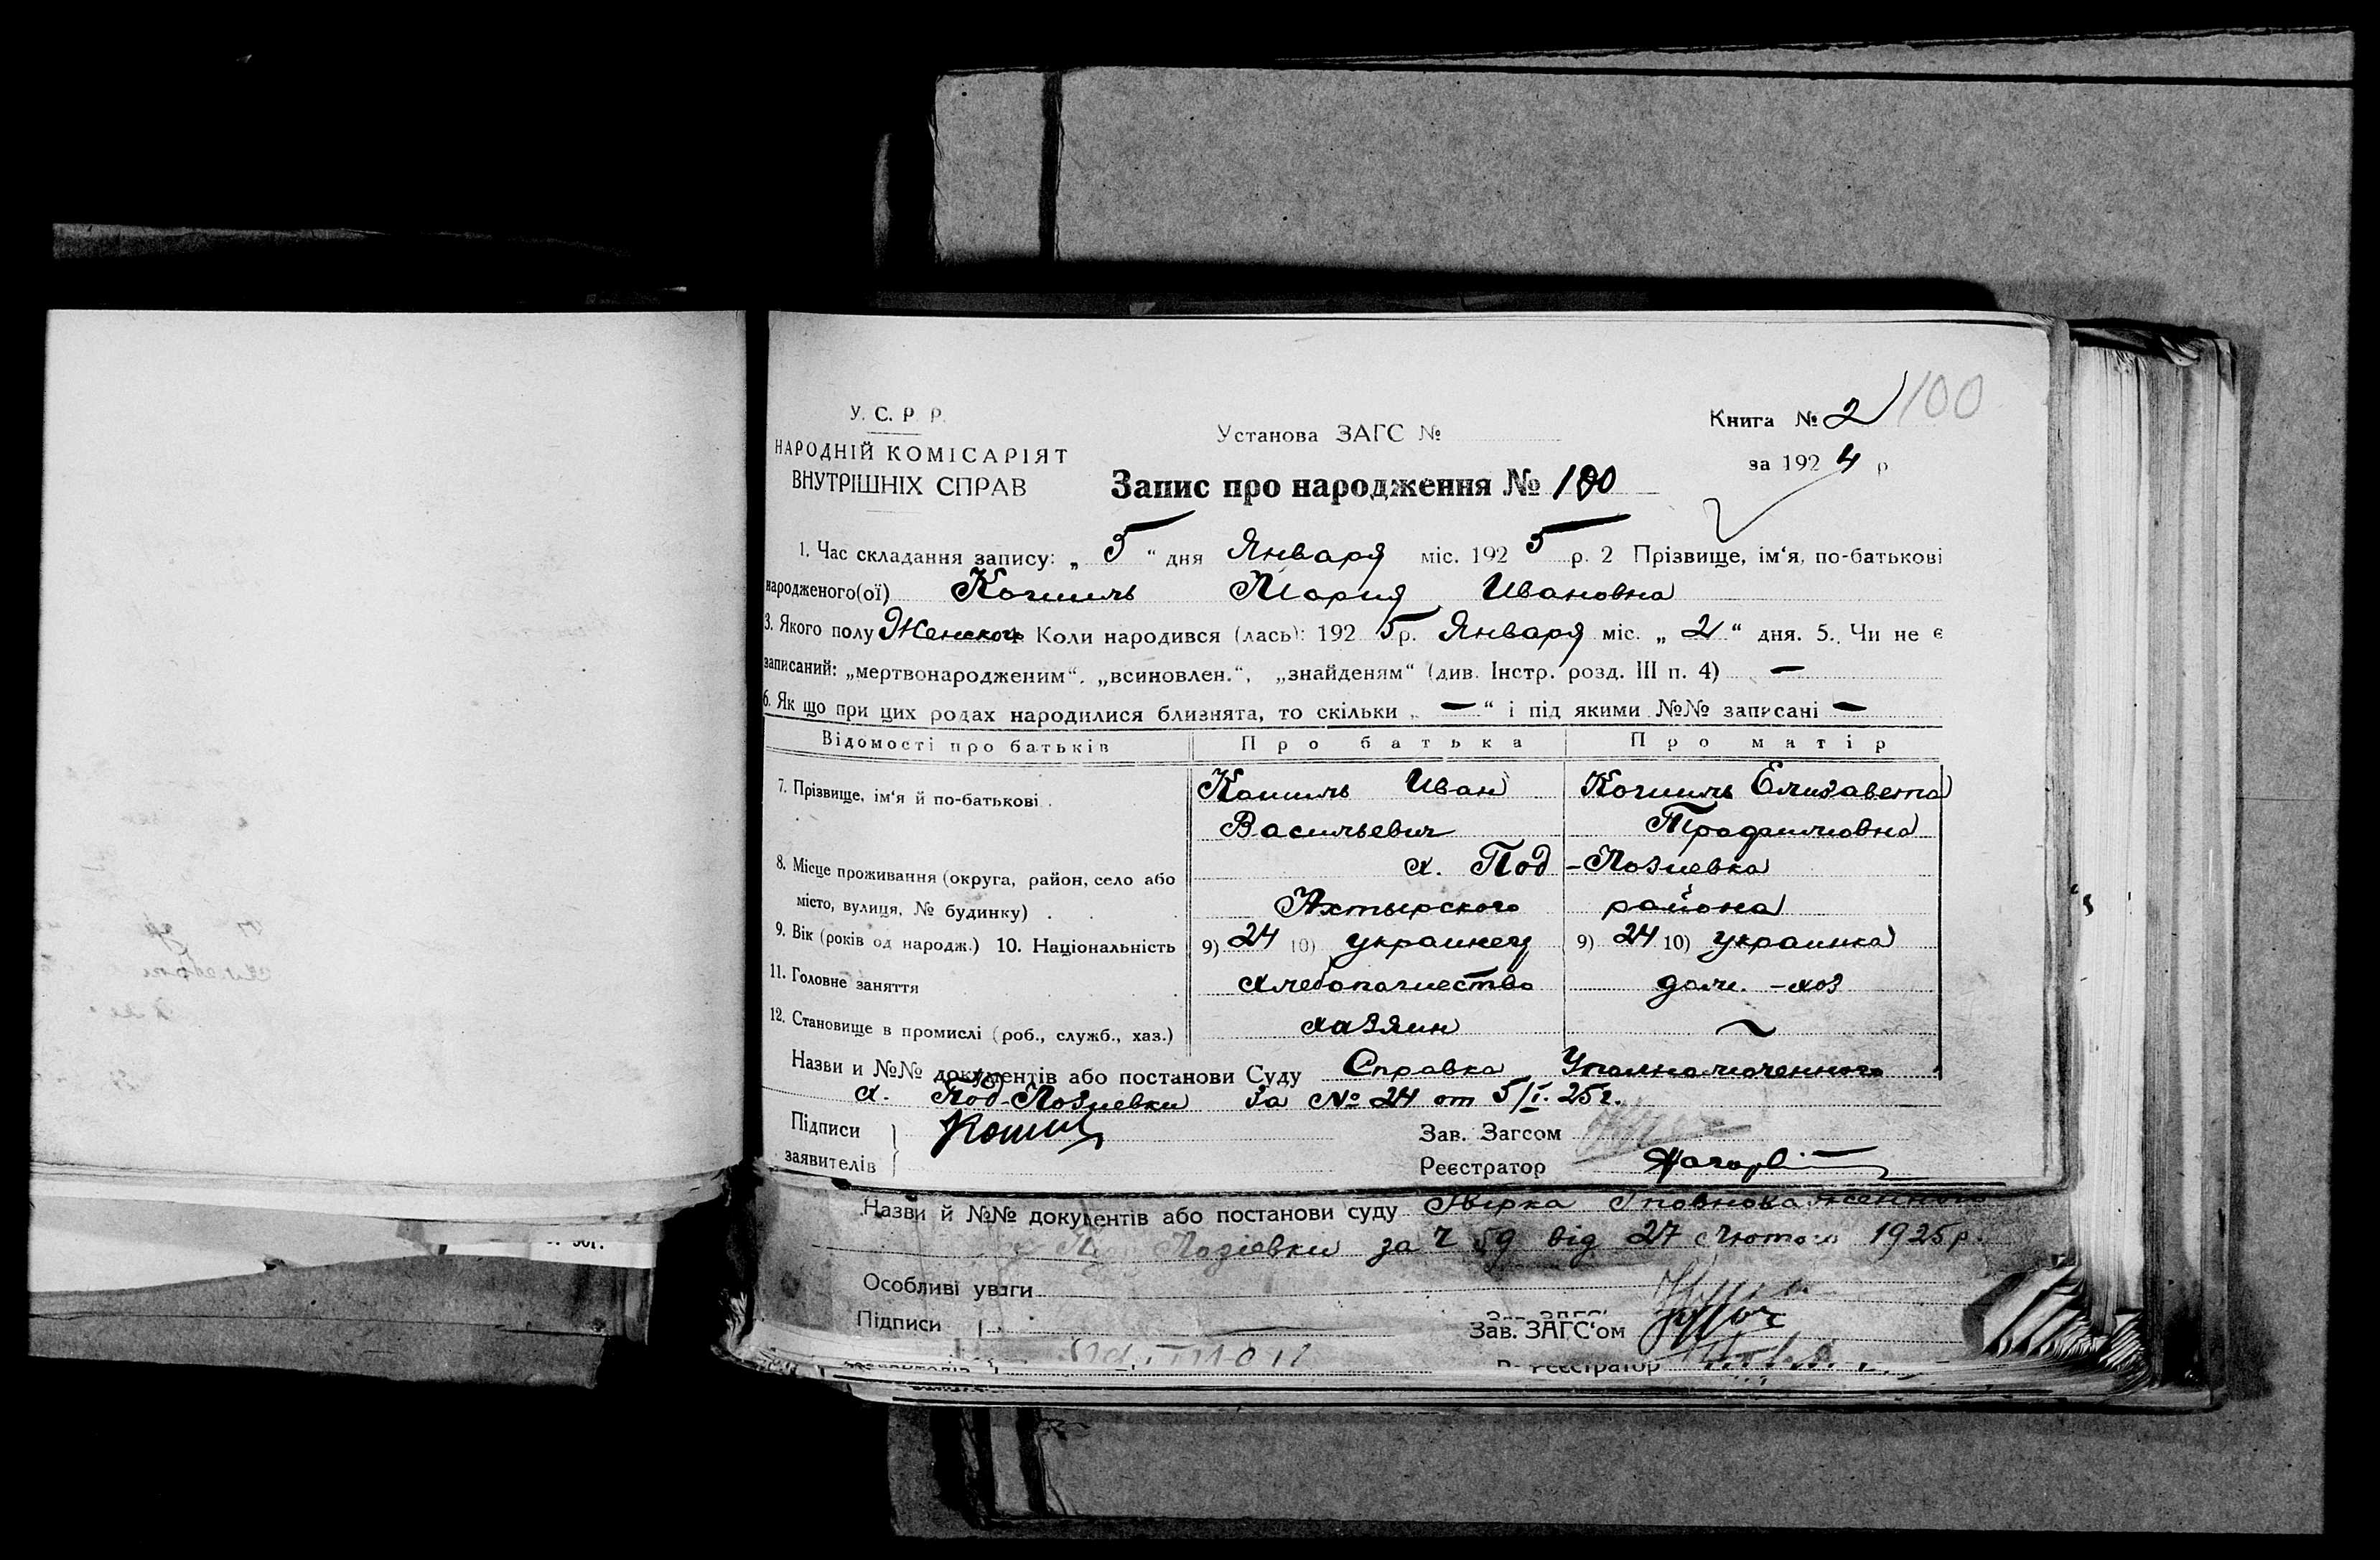 У. С. Р. Р.
НАРОДНІЙ КОМІСАРІЯТ
ВНУТРІШНІХ СПРАВ
Установа ЗАГС №
Книга № 2
100
за 1924 р
Запис про народження № 100
1. Час складання запису: „ 5 “ дня Января міс. 1925 р. 2 Прізвище, ім‘я, по-батькові
народженого(ої) Кошиль Мария Ивановна
3. Якого полу Женског 4. Коли народився (лась): 1925 р. Января міс. „ 2 “ дня. 5. Чи не є
записаний: „мертвонародженим“, „всиновлен.“, „знайденям“ (див. Інстр. розд. III п. 4) —
6. Як що при цих родах народилися близнята, то скільки „ — “ і під якими №№ записані —
Відомості про батьків Про батька Про матір
7. Прізвище, ім‘я й по-батькові . Кошиль Иван Кошиль Елизавета
Васильевич Трафимовна
8. Місце проживання (округа, район, село або х. Под -Лозиевка
місто, вулиця, № будинку) . Ахтырского района
9. Вік (років од народж.) 10. Національність 9) 24 10) украинец 9) 24 10) украинка
11. Головне заняття хлебопашество дом. -хоз
12. Становище в промислі (роб., служб., хаз.) хазяин ~
Назви и №№ документів або постанови Суду Справка Уполномоченного
х. Под-Лозиевки За № 24 от 5/I. 25г.
Підписи Кошиль Зав. Загсом
заявителів Реєстратор
Назви й №№ документів або постанови суду Уповноваженного
Лозіевки за Ч 59 від 27 Лютого 1925 р.
Особливі уваги
Підписи Зав. ЗАГС‘ом
Реєстратор